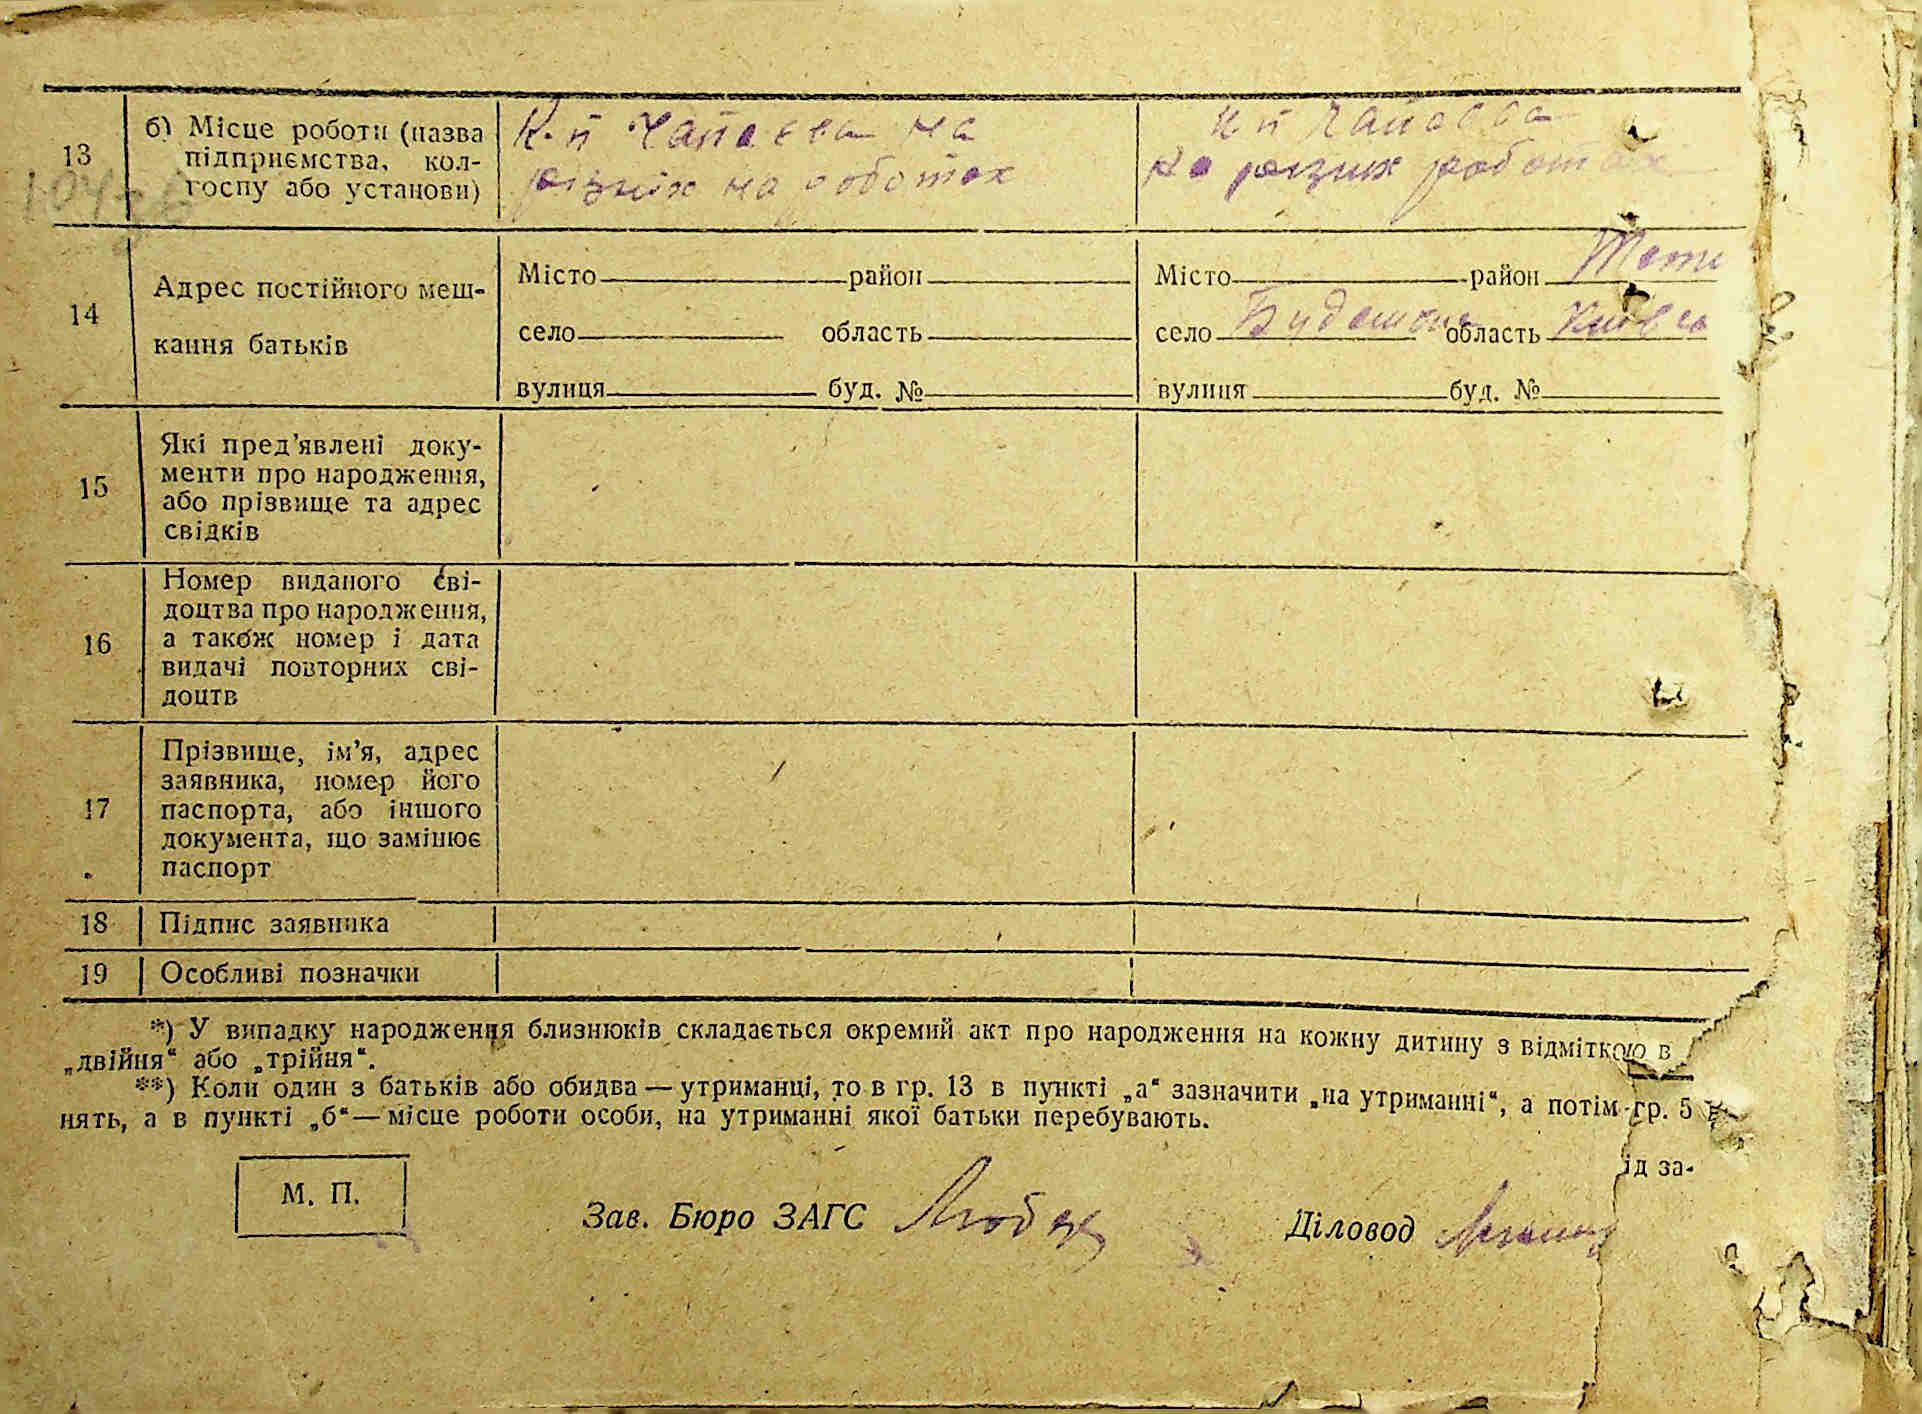 13
б) Місце роботи (назва
підприємства, кол-
госпу або установи)
К-п Чапаєва на
різніх на роботах
к п Чапаєва
на різних роботах
14
Адрес постійного меш-
кання батьків
Місто район
село область
вулиця буд. №
Місто район
село область Київсь
вулиця буд. №
15
Які пред’явлені доку-
менти про народження,
або прізвище та адрес
свідків
16
Номер виданого сві-
доцтва про народження,
а також номер і дата
видачі повторних сві-
доцтв
17
Прізвище, ім’я, адрес
заявника, номер його
паспорта, або іншого
документа, що замінює
паспорт
18 Підпис заявника
19 Особливі позначки
*) У випадку народження близнюків складається окремий акт про народження на кожну дитину з відміткою в
„двійня“ або „трійня“.
**) Коли один з батьків або обидва — утриманці, то в гр. 13 в пункті „а“ зазначити „на утриманні“, а потім гр. 5
нять, а в пункті „б“ — місце роботи особи, на утриманні якої батьки перебувають.
ід за-
М. П.
Зав. Бюро ЗАГС
Діловод